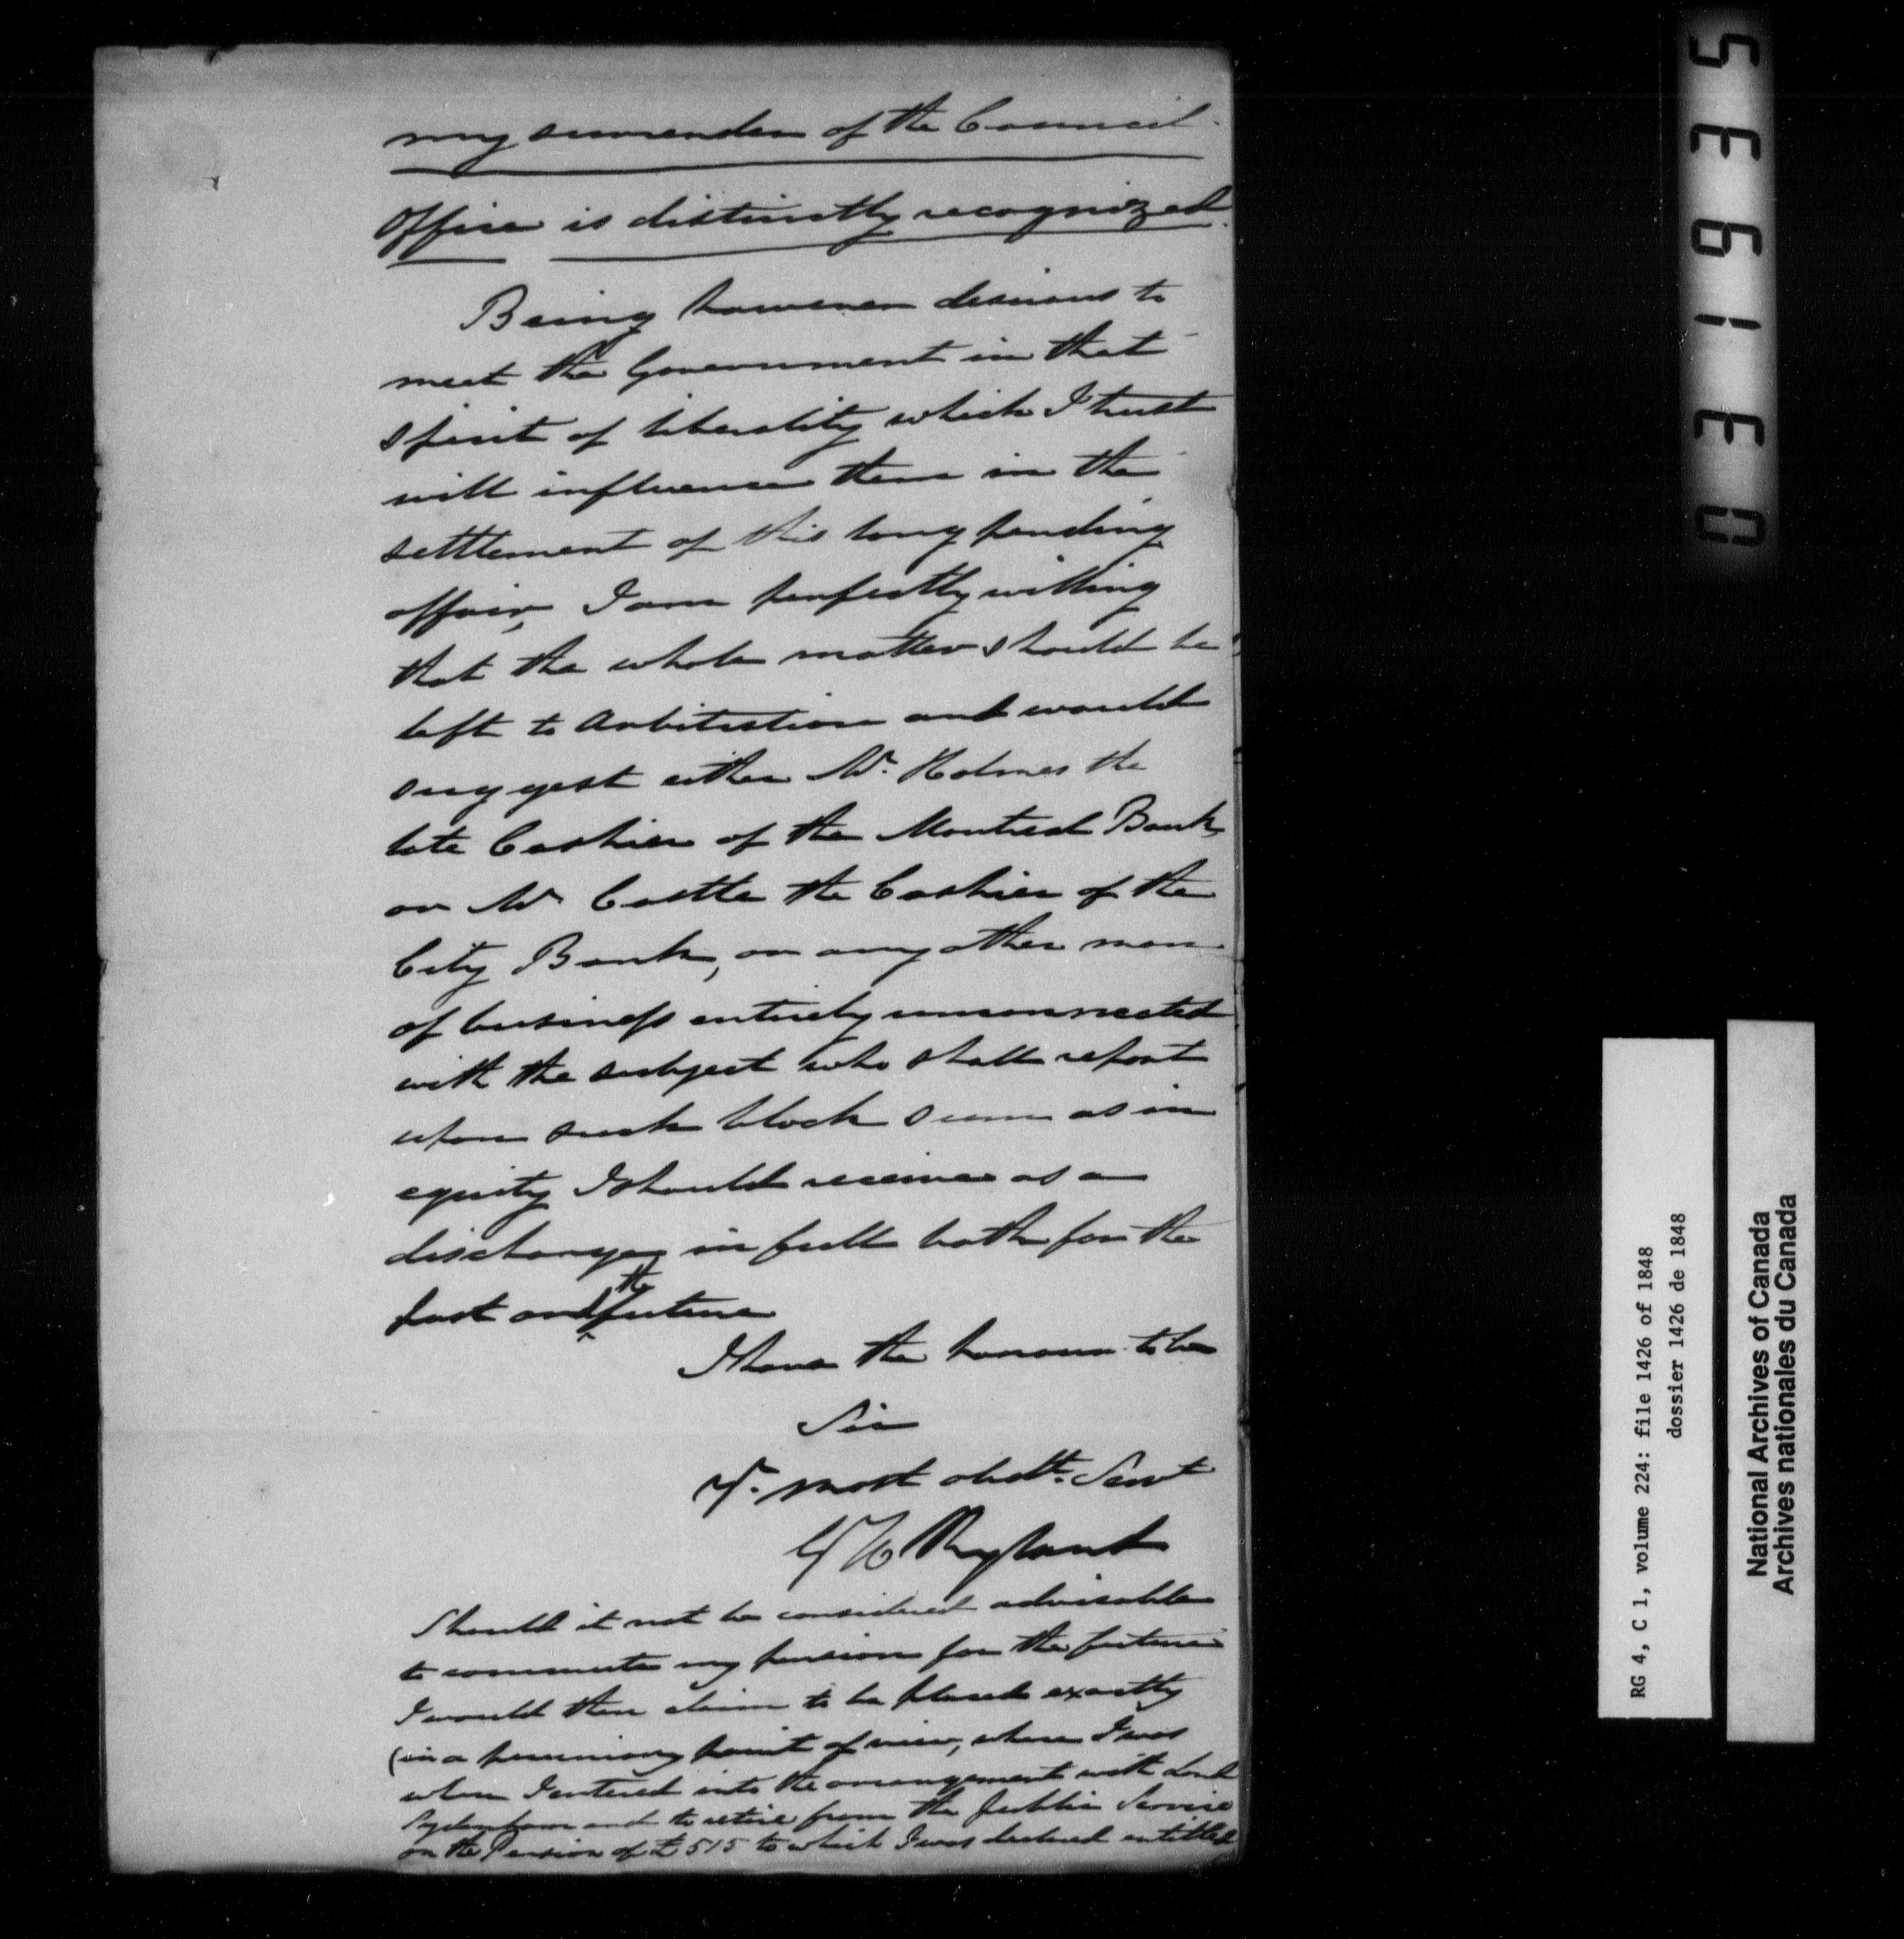 my surrender of the Council
Office is distinctly recognized.
Being however desirous to
meet the Government in that
spirit of liberality which I trust
will influence them in the
settlement of this long pending
affair, I am perfectly willing
that the whole matter should be
left to Arbitration and would
suggest either Mr. Holmes the
late Cashier of the Montreal Bank
or Mr Castle the Cashier of the
City Bank, or any other man
of business entirely unconnected
with the subject who shall report
upon such block sum as in
equity I should receive as a
discharge in full both for the
past and the future
I have the honour to be
Sir
Yr. most obedt. Servt
G H Ryland
Should it not be considered advisable
to commute my pension for the future
I would then claim to be placed exactly
(in a pecuniary point of view, where I was
when I entered into the arrangement with Lord
Sydenham and to retire from the Public Service
on the Pension of £515 to which I was declared entitled
031935
RG 4, C 1, volume 224: file 1426 of 1848
dossier 1426 de 1848
National Archives of Canada
Archives nationales du Canada